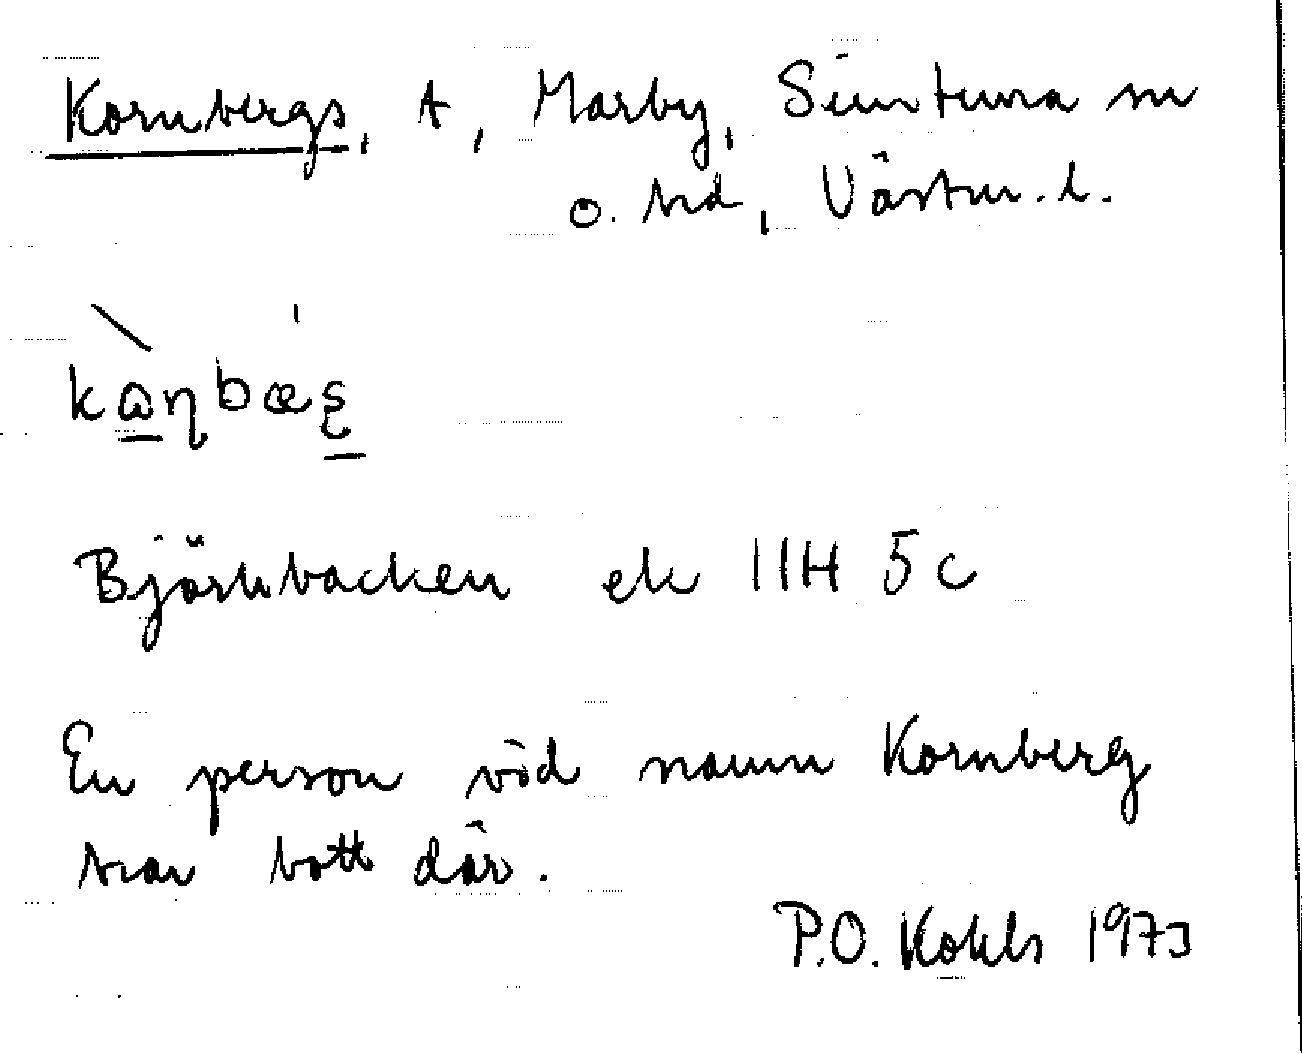 Kornbergs, t, Marby, Simtuna sn
o. hd, Västm. l.
kȧn̨bæs̨
Björkbacken ek 11H 5c
En person vid namn Kornberg
har bott där.
P.O. Kohls 1973